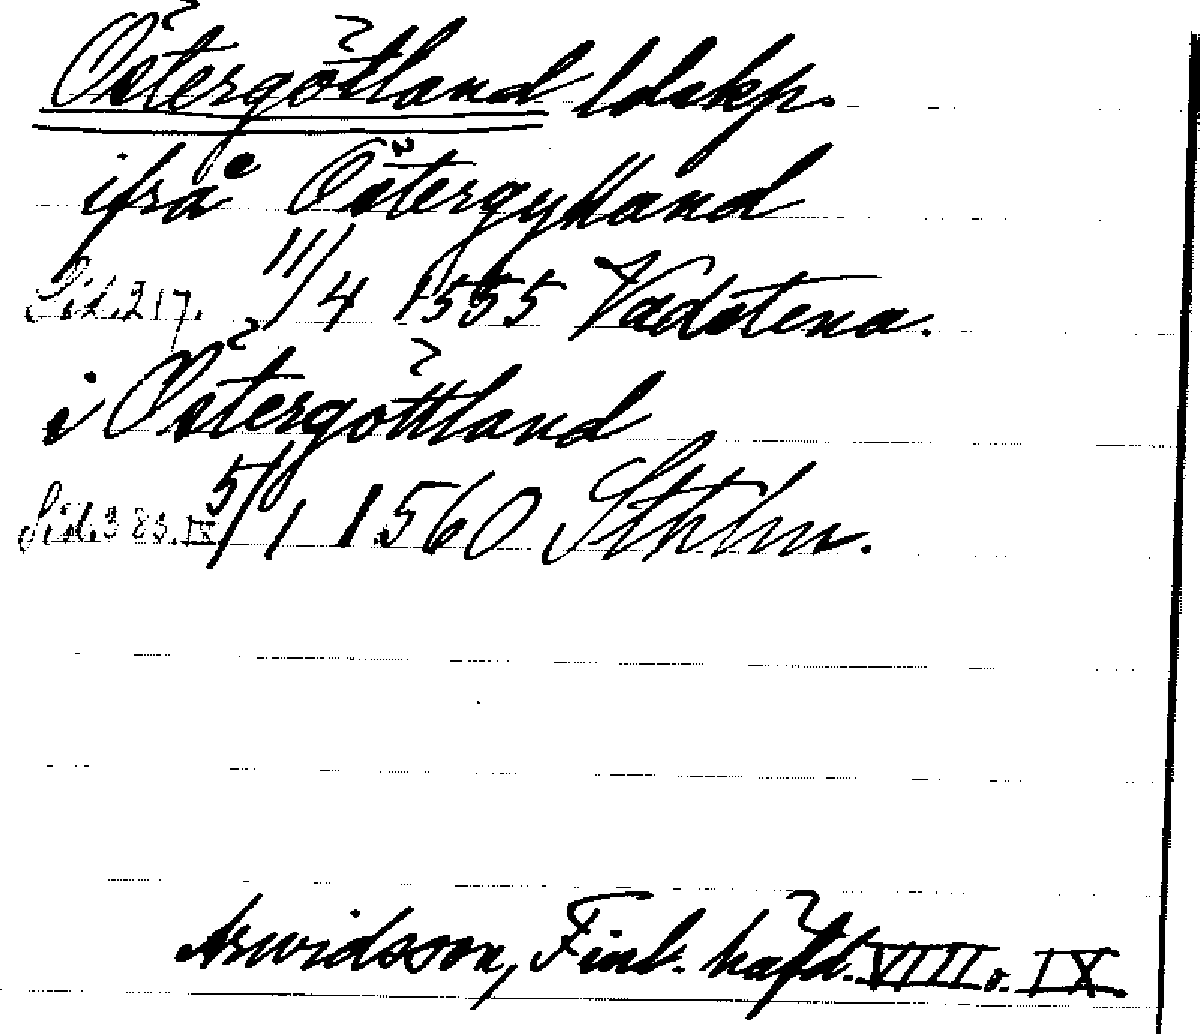 Östergötland ldskp.
ifrå Östergylland
Sid. 217. 11/4 1555 Vadstena.
i Östergöttland
Sid. 383. IX 5/1 1560 Sthlm.
Arwidsson, Finl. häfd. VIII o. IX.